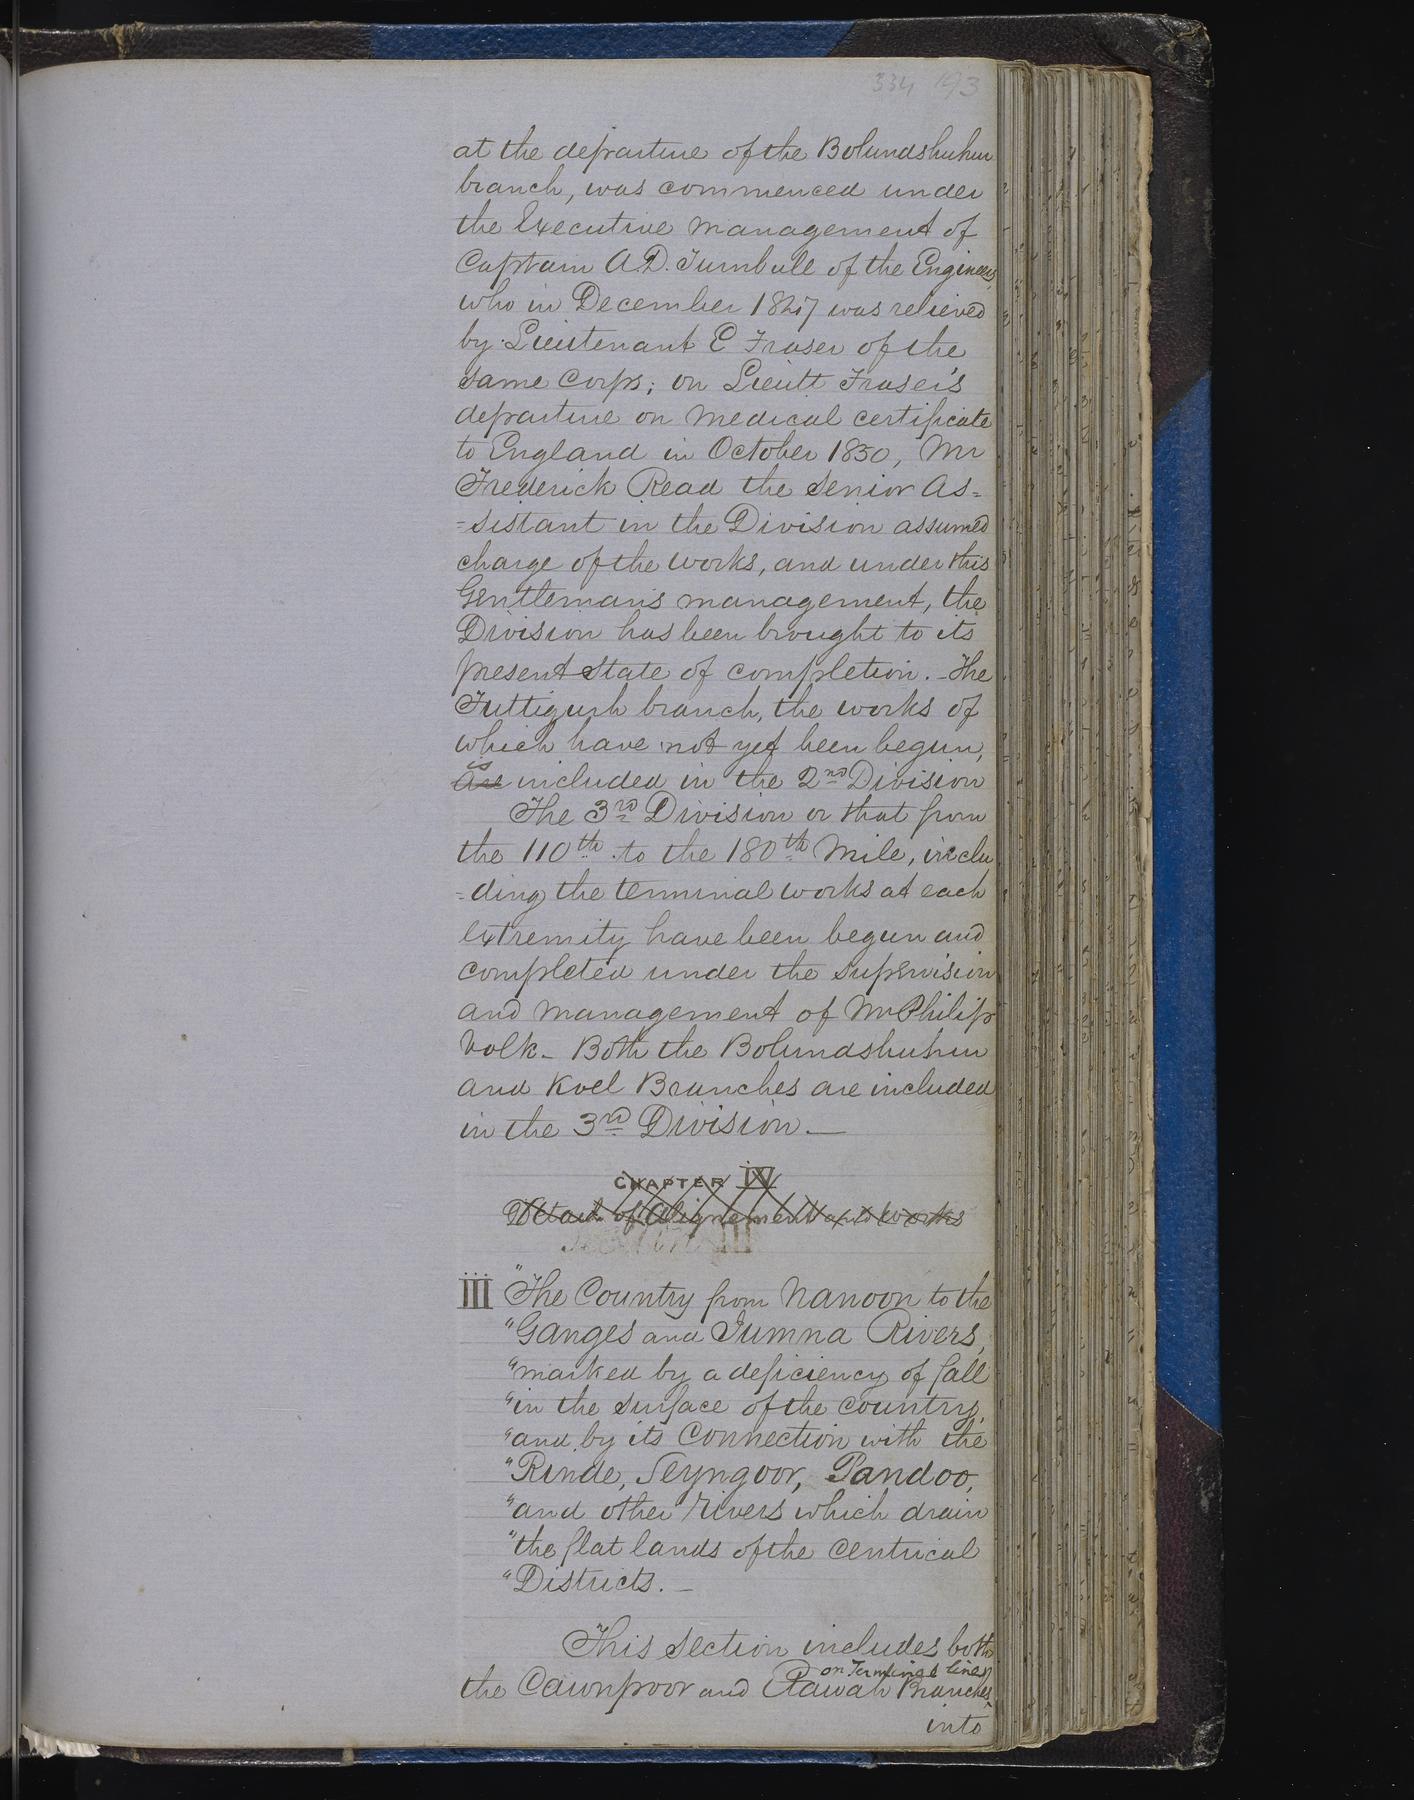 334 193
at the departure of the Bolundshuhur
branch, was commenced under
the Executive management of
Captain A.D. Turnbull of the Engineers,
who in December 1847 was relieved
by Lieutenant E Fraser of the
same Corps; on Lieutt Fraser's
departure on medical certificate
to England in October 1850, Mr
Frederick Read the Senior As=
=sistant in the Division assumed
charge of the works, and under this
Gentleman's management, the
Division has been brought to its
present state of completion. - The
Futtigurh branch, the works of
which have not yet been begun,
is
are included in the 2nd Division
The 3rd Division or that from
the 110th to the 180th Mile, inclu
=ding the terminal works at each
extremity have been begun and
completed under the supervision
and management of Mr Philip
Volk_ Both the Bolundshuhur
and Koel Branches are included
in the 3rd Division_
CHAPTER IV
Detail of Alignement and Works
Section III
III "The Country from Nanoon to the
"Ganges and Jumna Rivers,
"marked by a deficiency of fall
"in the surface of the country,
"and by its Connection with the
"Rinde, Seyngoor, Pandoo,
"and other rivers which drain
"the flat lands of the centrical
"Districts. _
This section includes both
on Terminal lines
the Cawnpoor and Etawah Branches,
into